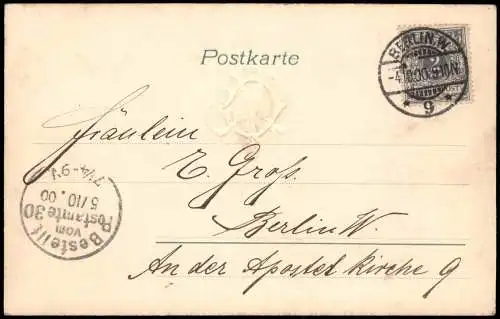 Postkarte
BERLIN, W.
-4.10.00. 9-10N.
* 9 *
Fräulein
E. Groß.
Berlin W.
An der Apostel Kirche 9
Bestellt
vom
Postamte 30
5/10.00
7¼-9V.